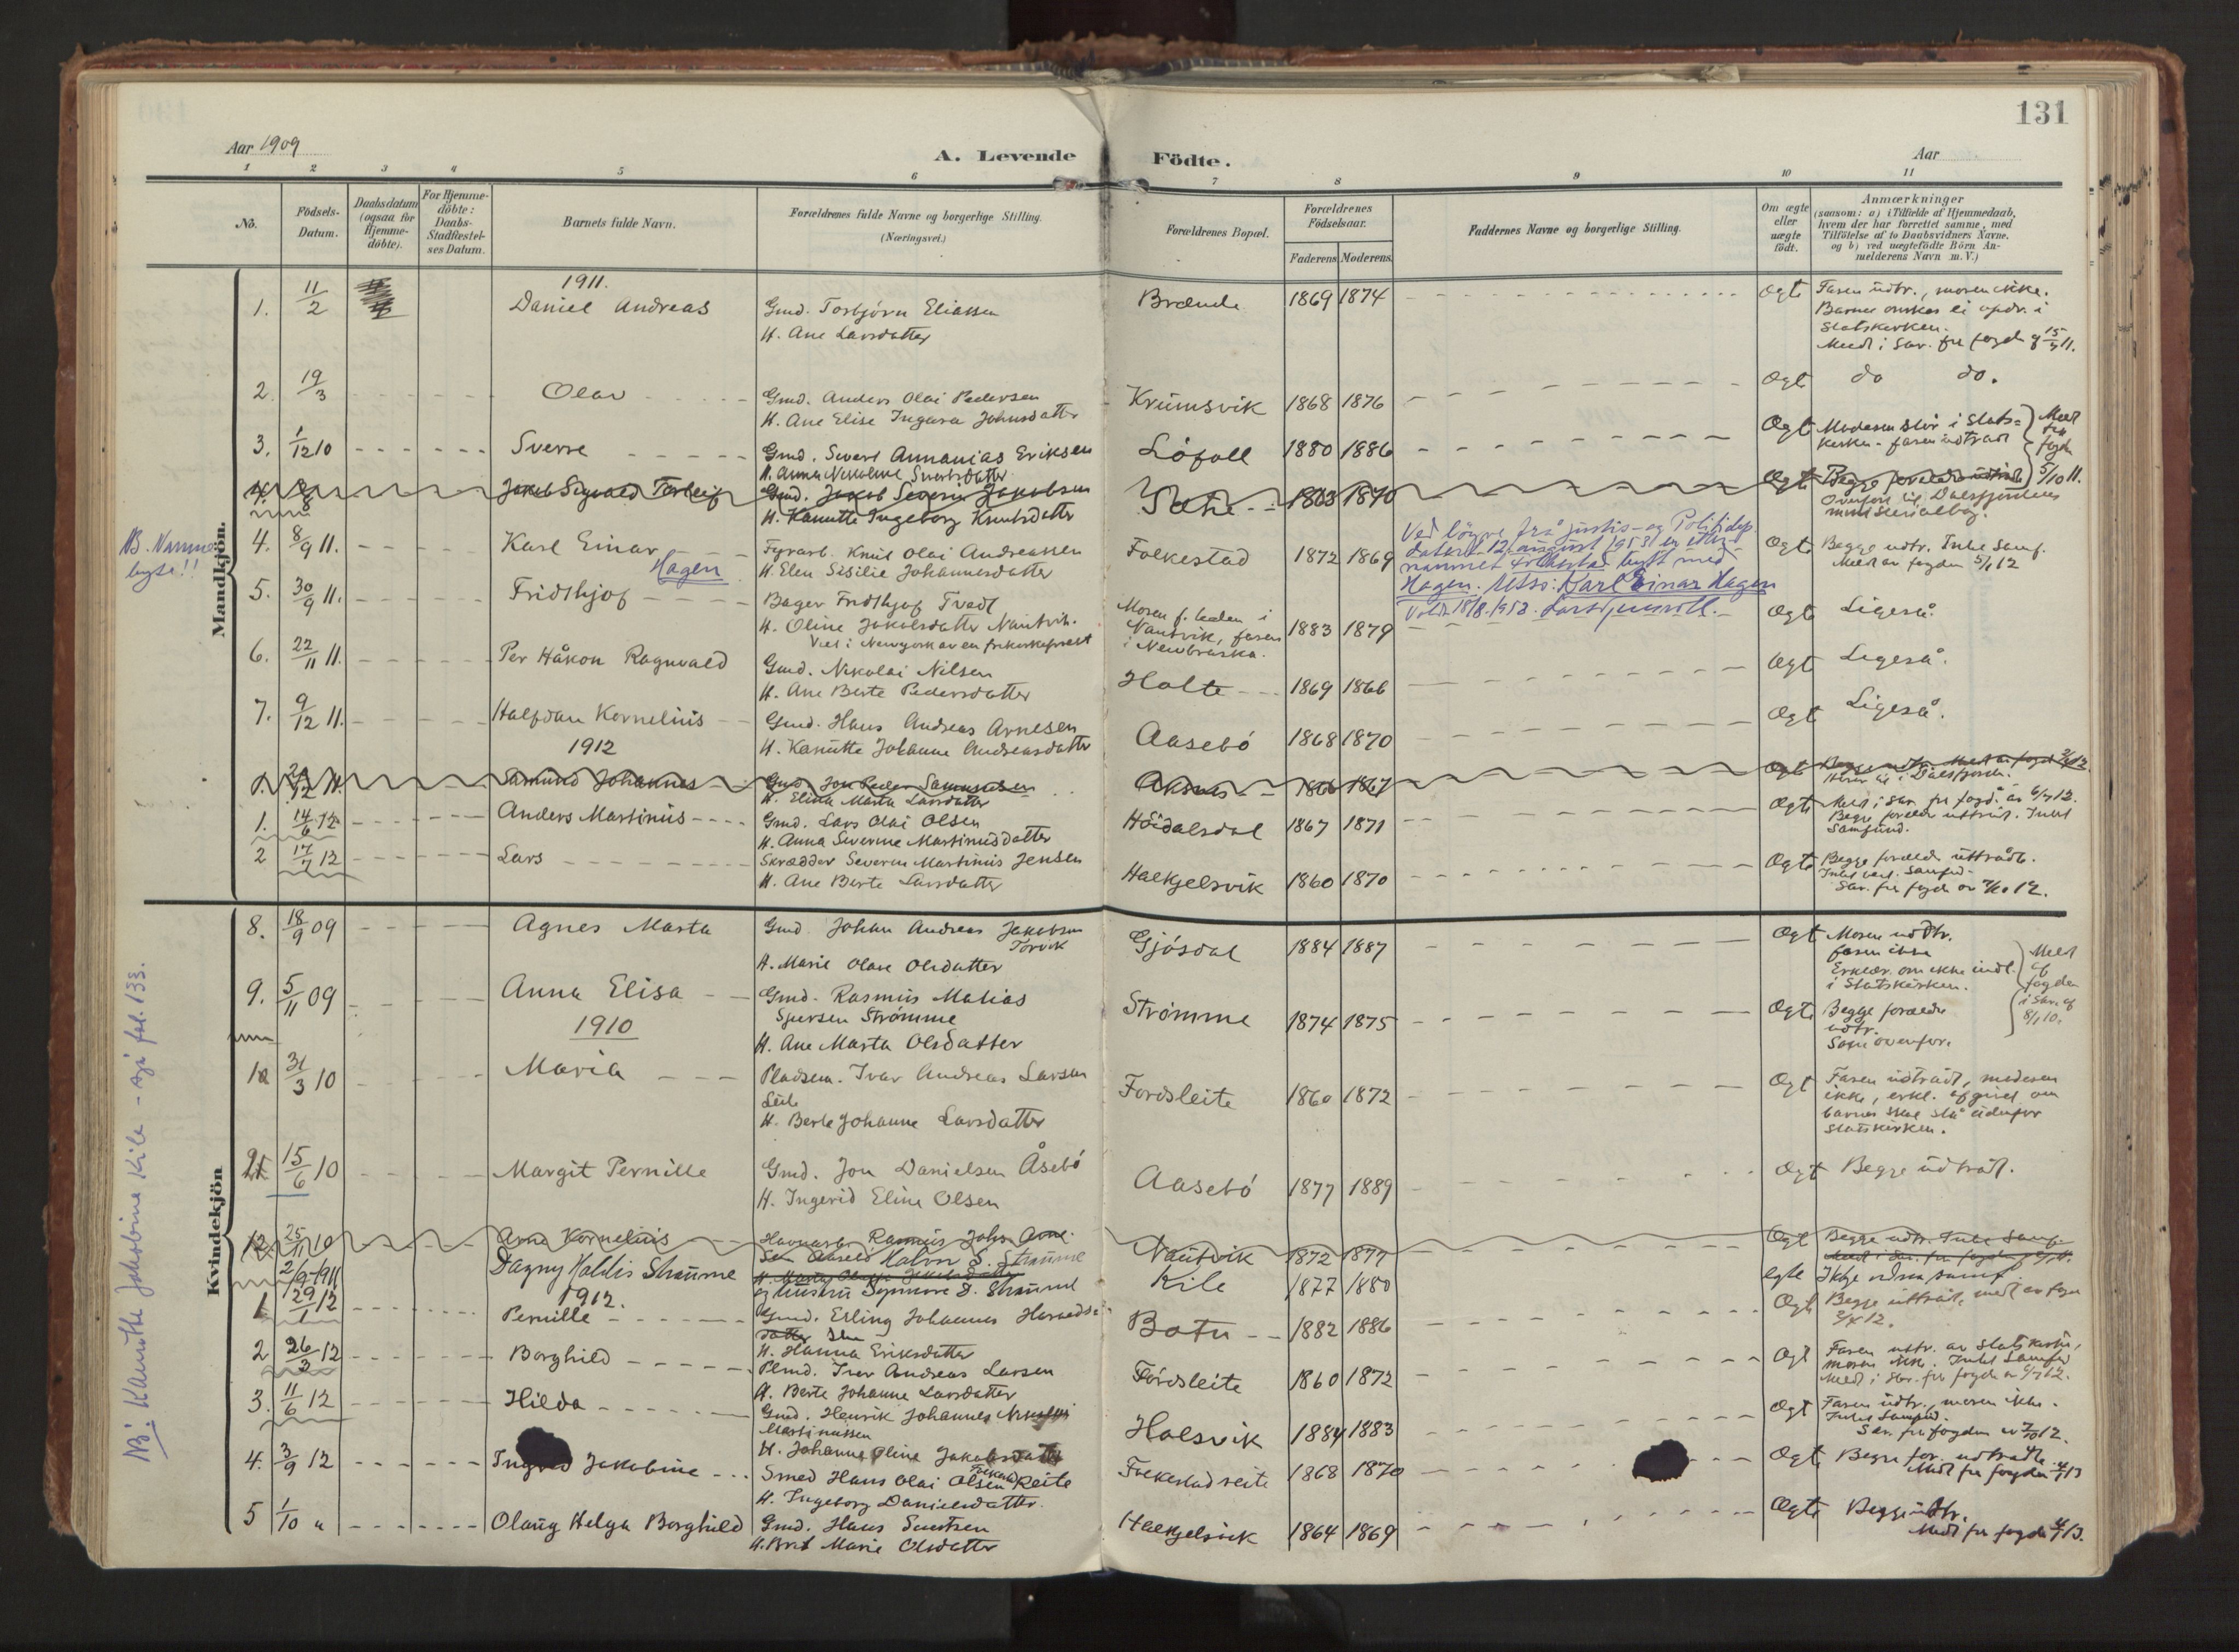 131
Aar 1909
A. Levende Födte.
Aar
1 2 3 4 5 6 7 8 9 10 11
No.
Födsels-Datum.
Daabsdatum (ogsaa for Hjemme-döbte).
For Hjemme-döbte: Daabs-Stadfæstel-ses Datum.
Barnets fulde Navn.
Forældrenes fulde Navne og borgerlige Stilling.
(Næringsvei.)
Forældrenes Bopæl.
Forældrenes Födselsaar.
Faderens Moderens
Faddernes Navne og borgerlige Stilling.
Om ægte eller uægte födt.
Anmærkninger
(saasom: a) i Tilfælde af Hjemmedaab, hvem der har forrettet samme, med Tilföielse af to Daabsvidners Navne, og b) ved uægtefödte Börn An-melderens Navn m. V.)
Mandkjön.
1911.
1. 11/2 Daniel Andreas Gmd. Torbjørn Eliassen
H. Ane Larsdatter
Brænde 1869 1874 Ogte Faren udtr., moren ikke.
Barnet ønskes ei opdr. i
Statskirken.
2. 19/3 Olav Gmd. Anders Olai Pedersen
H. Ane Elise Ingara Johnsdatter
Krumsvik 1868 1876 Ogte do do.
3. 1/12 10 Sverre Gmd. Sivert Annanias Eriksen
H. Anna Nikoline Sivertsdatter
Løfoll 1880 1886 Ogt Moderen står i Stats=
kirken - faren udtraadt
Meldt fra fogden 5/10 11.
4. Jakob Sigvald Torleif Gmd. Jakob Severin Jakobsen
H. Kanutte Ingeborg Knutsdatter
1863 1870 Ogte
Overført til Dalsfjordens
ministerialbog.
NB. Namne-
byte!!
4. 8/9 11. Karl Einar Hagen
Fyrarb. Knut Olai Andreassen
H. Elen Sisilie Johannesdatter
Folkestad 1872 1869
Ved løyve frå justis- og Politidep.
datert 12. august 1953 er etter-
namnet Folkestad bytt med
Hagen. Altso: Karl Einar Hagen
Volda 18/8. 1953.
Ogte Begge udtr. Intet Samf.
Meldt av fogden 5/1 12
5. 30/9 11. Fridthjof Bager Fridthjof Tvedt
H. Oline Jakobsdatter Nautvik.
Viet i Newyork av en frikirkeprest
Moren f. tiden i
Nautvik, faren
i Newbraska.
1883 1879 Ogt Ligeså.
6. 22/11 11. Per Håkon Ragnvald Gmd. Nikolai Nilsen
H. Ane Berte Pedersdatter
Holte 1869 1866 Ogt Ligeså.
7. 9/12 11. Halfdan Kornelius Gmd. Hans Andreas Arnesen
H. Kanutte Johanne Andreasdatter
Aasebö 1868 1870 Ogt Ligeså.
1912
Samund Johannes Gmd. Jon Peder Samundsen
H. Elina Marta Larsdatter
Aksnes 1866 1867 Ogt
1. 14/6 12 Anders Martinius Gmd. Lars Olai Olsen
H. Anna Severine Martinusdatter
Höidalsdal 1867 1871 Ogte Meldt i skr. fra fogd. av 6/7 12.
Begge foreldre uttrådt. Intet
Samfund.
2 17/7 12 Lars Skrædder Severin Martinius Jensen
H. Ane Berte Larsdatter
Halkjelsvik 1860 1870 Ogte Begge foreldre uttrådt.
Kvindekjön
8. 18/9 09 Agnes Marta Gmd. Johan Andreas Jakobsen
H. Marie Olave Olsdatter
Gjösdal 1884 1887 Ogt Moren udtr.
faren ikke
Erklær. om ikke indl.
i Statskirken.
Meldt af fogden i Skr. af 8/1 10.
9. 5/11 09 Anna Elisa Gmd. Rasmus Matias
Sjursen Strømme
H. Ane Marta Olsdatter
Strömme 1874 1875 Ogte Begge forældre
udtr.
Som ovenfor.
1910
10 31/3 10 Maria Pladsm. Ivar Andreas Larsen
H. Berte Johanne Larsdatter
Fördsleite 1860 1872 Ogt Faren udtrådt, moderen
ikke, erkl. afgivet om
barnet skal stå udenfor
Statskirken.
11 15/6 10 Margit Pernille Gmd. Jon Danielsen Åsebö
H. Ingerid Eline Olsen
Aasebö 1877 1889 Ogt Begge udtrådt.
12. 25/11 10 Arne Kornelius Havnearb. Rasmus John Arne-
sen Aasebö
Nautvik 1872 1877 Ogt Begge udtr. Intet Samf.
2/9-1911 Dagny Haldis Straume Halvor S. Straume
og hustru Synnøve J. Straume
Kile 1877 1880 egte Ikkje
1912.
1 29/1 12 Pernille Gmd. Erling Johannes
H. Hanna Eriksdatter
Botn 1882 1886 Ogt Begge uttrådt,
2 26/3 12 Borghild Plmd. Iver Andreas Larsen
H. Berte Johanne Larsdatter
Fördsleite 1860 1872 Ogt Faren udtr. av Statskirken,
moren ikke. Intet Samfund
3. 11/6 12 Hilda Gmd. Henrik Johannes
Martinussen
H. Johanne Oline Jakobsdatter
Holsvik 1884 1883 Ogt Faren udtr., moren ikke.
Intet Samfund.
4. 3/9 12 Jakobine Smed Hans Olai Olsen Folkestadreite
H. Ingeborg Danielsdatter.
Folkestadreite 1868 1870 Ogt Begge for. udtrådt.
Meldt fra fogden 4/1 13
5 1/10 " Olaug Helga Borghild Gmd. Hans Sivertsen
H. Brit Marie Olsdatter
Halkjelsvik 1864 1869 Ogte Begge udtr.
Meldt fra fogden 4/1 13.
NB! Kanutte Jakobine Kile - sjå fol. 133.